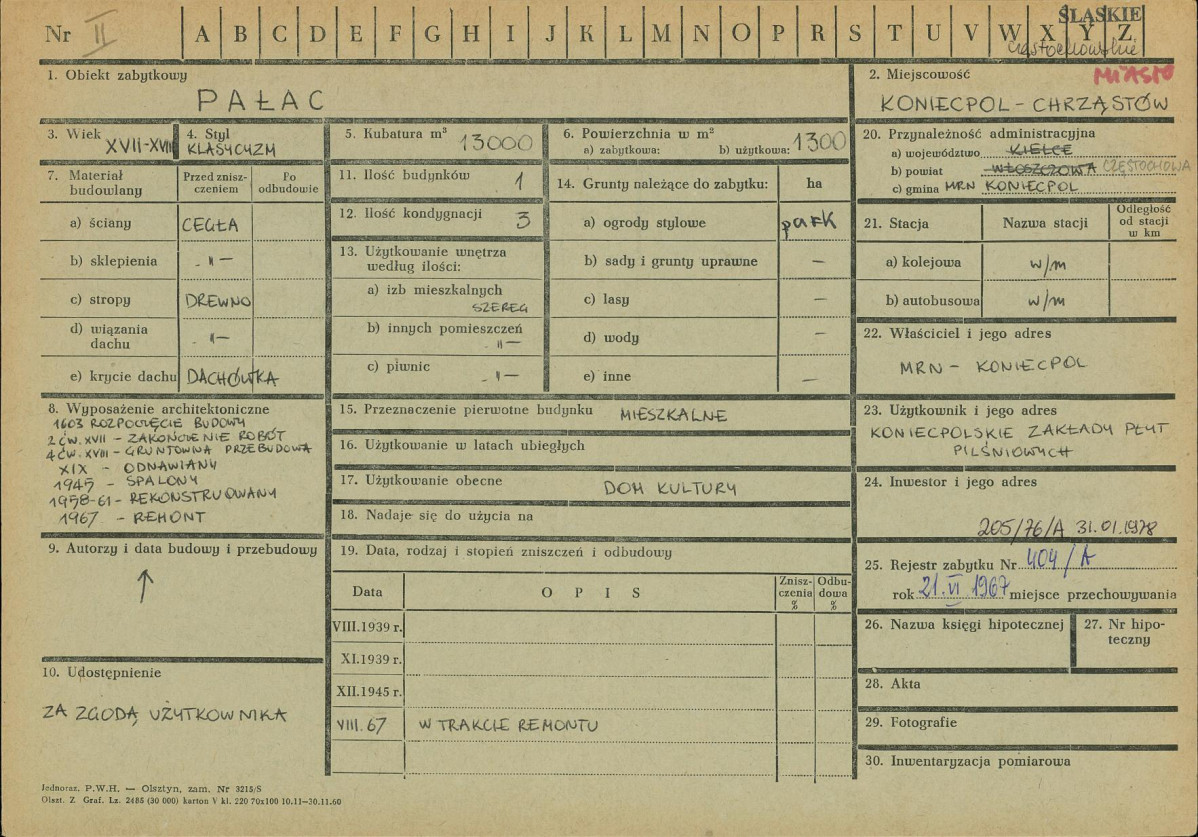 Nr II A B C D E F G H I J K L M N O P R S T U V W X Y Z
ŚLĄSKIE
częstochowskie
1. Obiekt zabytkowy
PAŁAC
2. Miejscowość
MIASTO
KONIECPOL - CHRZĄSTÓW
3. Wiek
XVII-XVIII
4. Styl
KLASYCYZM
5. Kubatura m³ 13000
6. Powierzchnia w m²
a) zabytkowa: b) użytkowa: 1300
20. Przynależność administracyjna
a) województwo KIELCE
b) powiat WŁOSZCZOWA CZĘSTOCHOWA
c) gmina MRN KONIECPOL
7. Materiał budowlany
Przed zniszczeniem
Po odbudowie
a) ściany CEGŁA
b) sklepienia -"-
c) stropy DREWNO
d) wiązania dachu -"-
e) krycie dachu DACHÓWKA
11. Ilość budynków 1
12. Ilość kondygnacji 3
13. Użytkowanie wnętrza
według ilości:
a) izb mieszkalnych
SZEREG
b) innych pomieszczeń
-"-
c) piwnic
-"-
14. Grunty należące do zabytku: ha
a) ogrody stylowe park
b) sady i grunty uprawne —
c) lasy —
d) wody —
e) inne —
21. Stacja
Nazwa stacji
Odległość
od stacji
w km
a) kolejowa w/m
b) autobusowa w/m
22. Właściciel i jego adres
MRN - KONIECPOL
8. Wyposażenie architektoniczne
1603 ROZPOCZĘCIE BUDOWY
2 ĆW. XVII - ZAKOŃCZENIE ROBÓT
4 ĆW. XVIII - GRUNTOWNA PRZEBUDOWA
XIX - ODNAWIANY
1945 - SPALONY
1958-61 - REKONSTRUOWANY
1967 - REMONT
9. Autorzy i data budowy i przebudowy
↑
10. Udostępnienie
ZA ZGODĄ UŻYTKOWNIKA
15. Przeznaczenie pierwotne budynku MIESZKALNE
16. Użytkowanie w latach ubiegłych
17. Użytkowanie obecne DOM KULTURY
18. Nadaje się do użycia na
19. Data, rodzaj i stopień zniszczeń i odbudowy
Data
O P I S
Zniszczenia
%
Odbudowa
%
VIII.1939 r.
XI.1939 r.
XII.1945 r.
VIII.67 W TRAKCIE REMONTU
23. Użytkownik i jego adres
KONIECPOLSKIE ZAKŁADY PŁYT
PILŚNIOWYCH
24. Inwestor i jego adres
205/76/A 31.01.1978
25. Rejestr zabytku Nr 404/A
rok 21.VI 1967 miejsce przechowywania
26. Nazwa księgi hipotecznej
27. Nr hipoteczny
28. Akta
29. Fotografie
30. Inwentaryzacja pomiarowa
Jednoraz. P.W.H. — Olsztyn, zam. Nr 3215/S
Olszt. Z. Graf. Lz. 2485 (30 000) karton V kl. 220 70x100 10.11—30.11.60